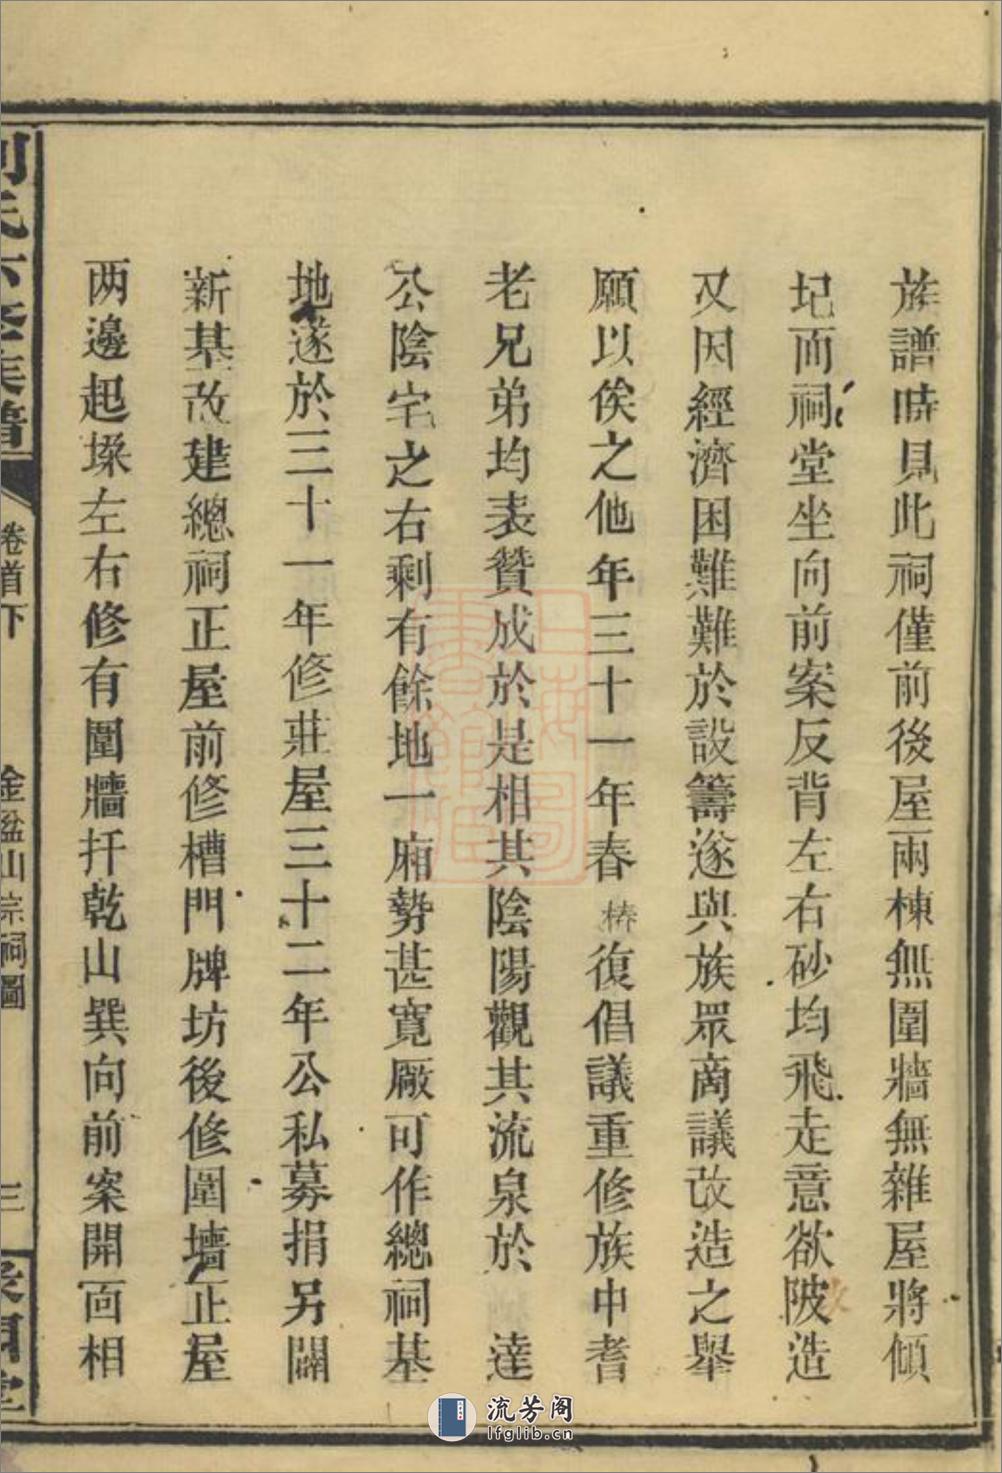 族譜時見此祠僅前後屋兩棟無圍牆無雜屋將傾
圮而祠堂坐向前案反背左右砂均飛走意欲陂造
又因經濟困難難於設籌遂與族眾商議改造之舉
願以俟之他年三十一年春椿復倡議重修族中耆
老兄弟均表贊成於是相其陰陽觀其流泉於 達
公陰宅之右剩有餘地一廂勢甚寬厰可作總祠基
地遂於三十一年修莊屋三十二年公私募捐另闢
新基改建總祠正屋前修槽門牌坊後修圍墻正屋
两邊起垜左右修有圍牆扦乾山巽向前案開面相
氏六修族譜
卷首下
金盆山宗祠圖
三
流芳阁
lfglib.cn